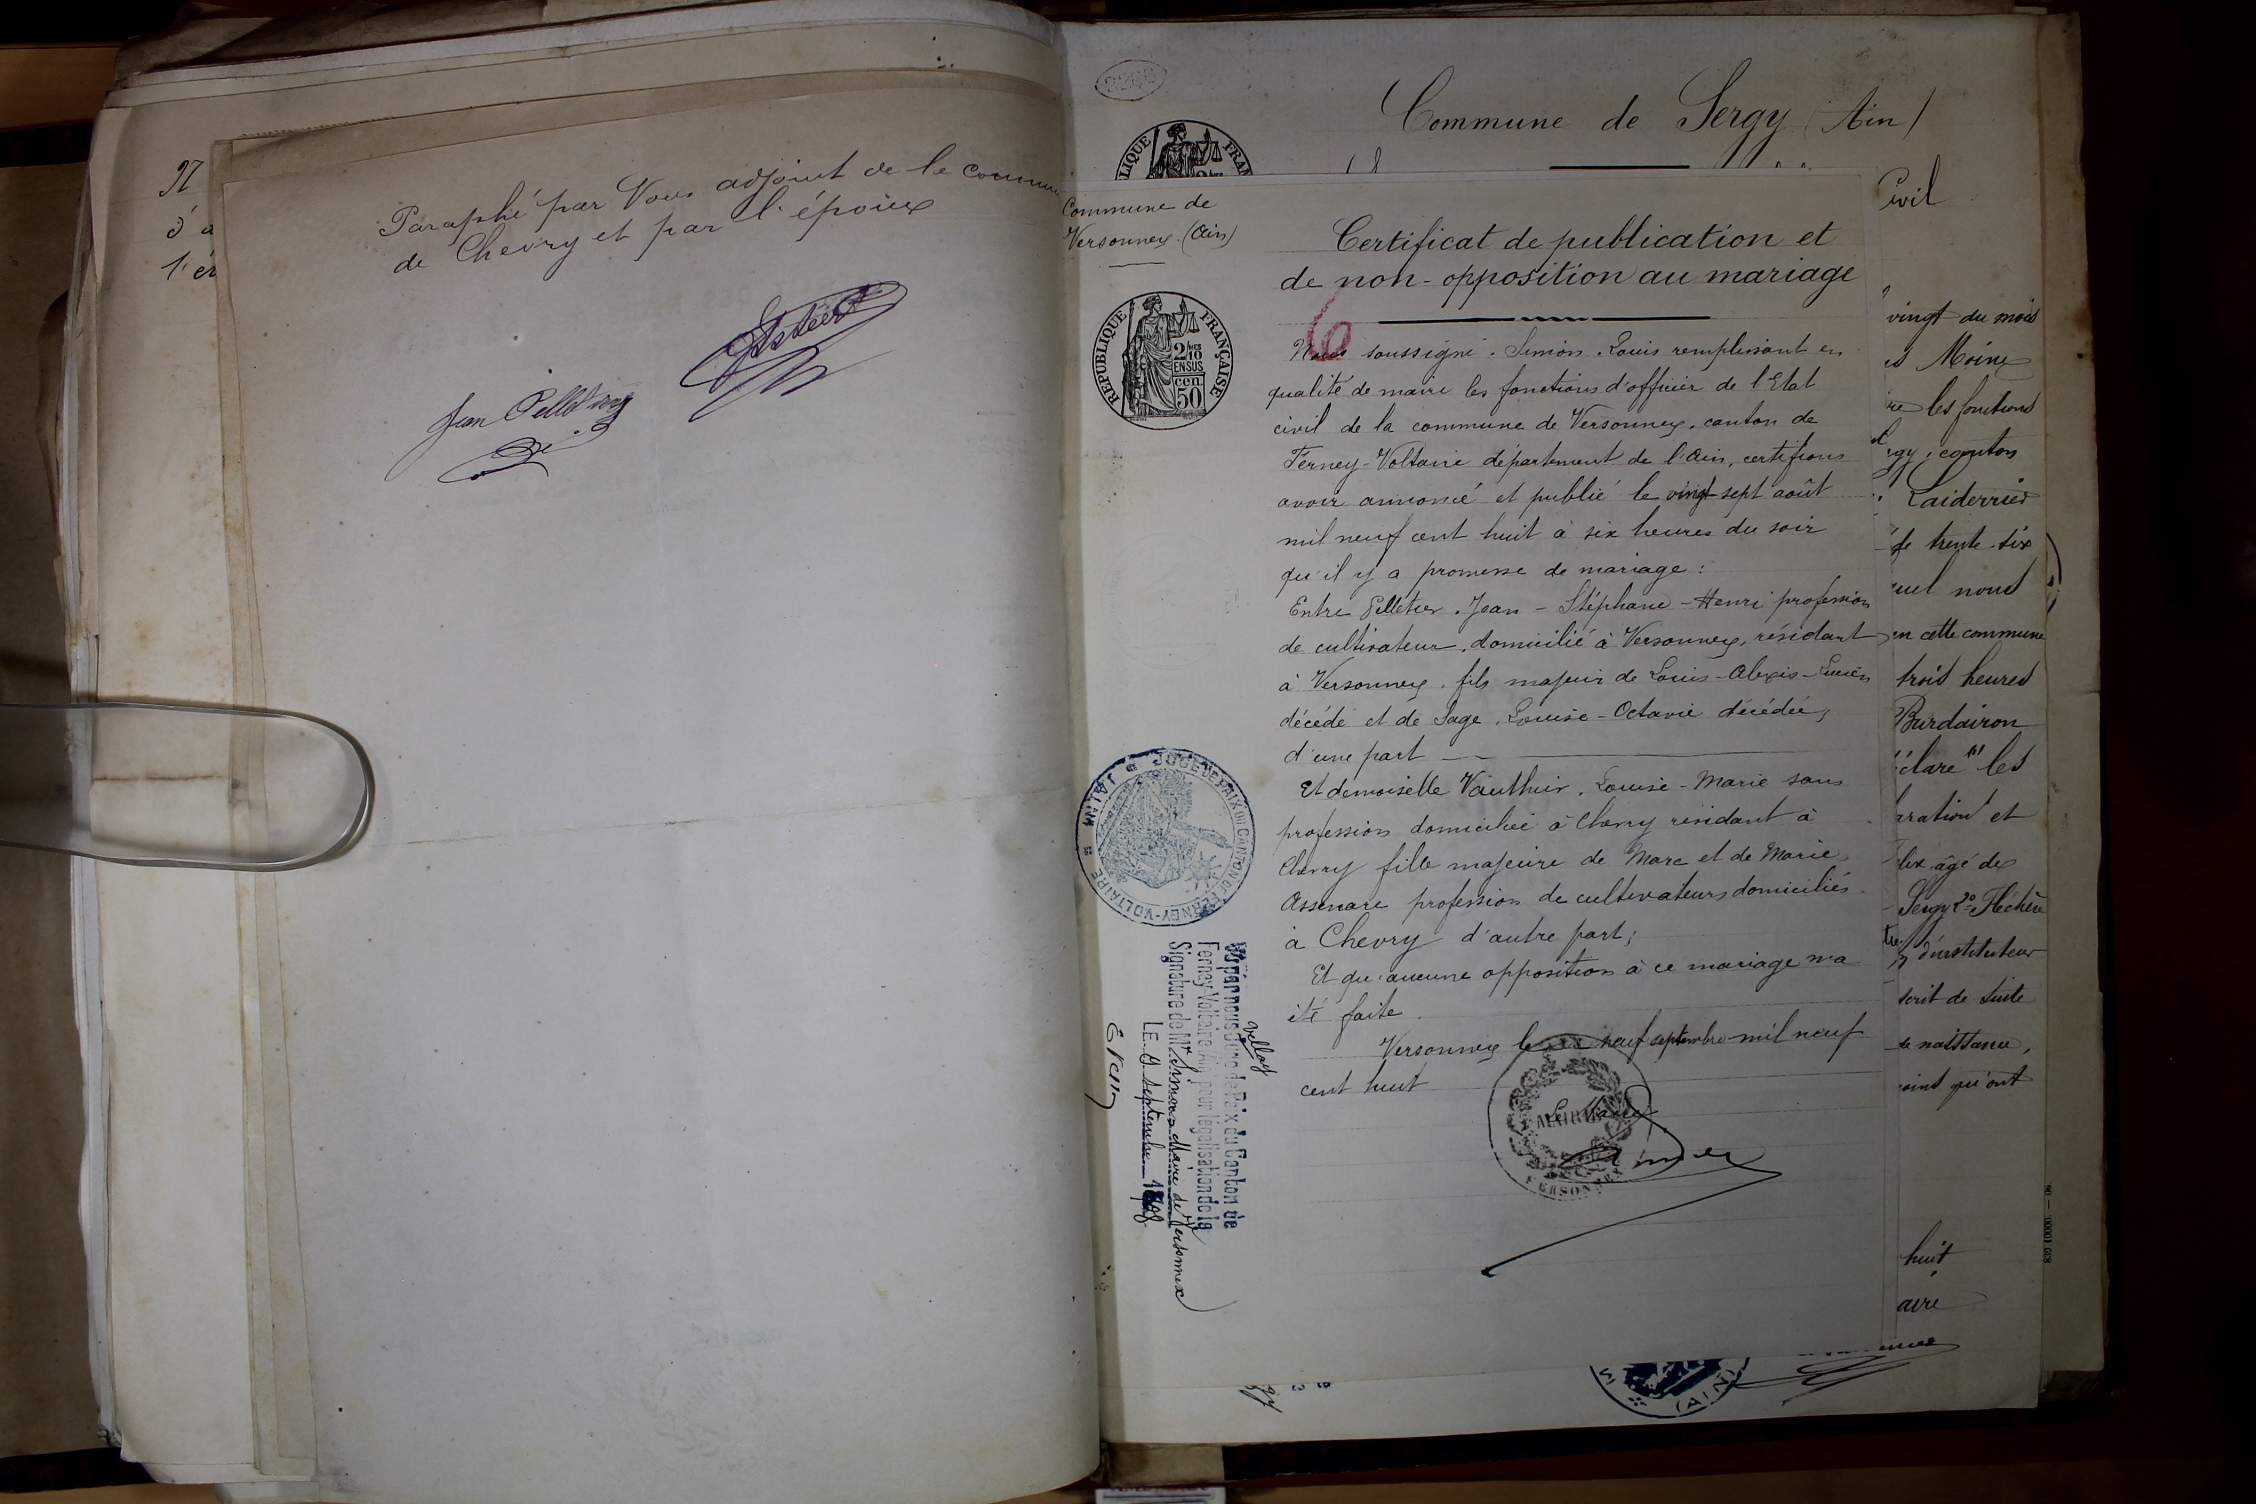 Paraphé par Nous adjoint de le commune
de Chevry et par l'époux
Jean Pelletier
Commune de Sergy (Ain)
Commune de
Versonnex (Ain)
Certificat de publication et
de non-opposition au mariage
6
REPUBLIQUE FRANÇAISE
2/10
EN SUS
50 cen
Nous soussigné. Simon. Louis remplissant en
qualité de maire les fonctions d'officier de l'Etat
civil de la commune de Versonnex, canton de
Ferney-Voltaire département de l'Ain, certifions
avoir annoncé et publié le vingt-sept août
mil neuf cent huit à six heures du soir
qu'il y a promesse de mariage :
Entre Pelletier. Jean-Stéphane-Henri profession
de cultivateur, domicilié à Versonnex, résidant
à Versonnex. fils majeur de Louis-Alexis-Lucien
décédé et de Sage. Louise-Octavie décédée,
d'une part
Et demoiselle Vauthier. Louise-Marie sans
profession domiciliée à Chevry résidant à
Chevry fille majeure de Marc et de Marie
Assenare profession de cultivateurs domiciliés
à Chevry d'autre part;
Et qu'aucune opposition à ce mariage n'a
été faite.
Versonnex le neuf septembre mil neuf
cent huit
Le Maire
MAIRIE
JUGE DE PAIX DU CANTON DE FERNEY-VOLTAIRE
Vu par nous Juge de Paix du Canton de
Ferney-Voltaire Ain pour légalisation de la
Signature de Mr Simon Maire de Versonnex
LE 9 septembre 1908
Civil
vingt du mois
Moine
re les fonctions
rgy, canton
Laiderrier
de trente-six
uel nous
en cette commune
trois heures
Burdairon
clare les
aration et
lix âgé de
Sergy 2° Flechère
d'instituteur
scrit de suite
de naissance,
oins qu'ont
huit
aire
(AIN)